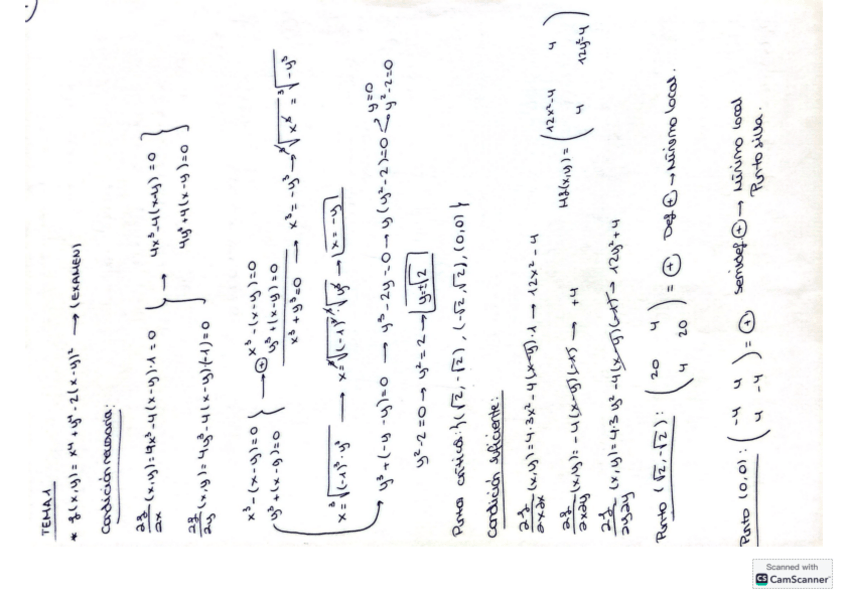 TEMA 1
* f(x,y) = x⁴ + y⁴ - 2(x-y)² → (EXAMEN)
Condición necesaria:
∂f/∂x (x,y) = 4x³ - 4(x-y)·1 = 0 } → 4x³ - 4(x-y) = 0 }
∂f/∂y (x,y) = 4y³ - 4(x-y)(-1) = 0 } 4y³ + 4(x-y) = 0 }
x³ - (x-y) = 0 } → ⊕ x³ - (x-y) = 0
y³ + (x-y) = 0 } y³ + (x-y) = 0
x³ + y³ = 0 → x³ = -y³ → ³√x³ = ³√-y³
x = ³√(-1)³·y³ → x = ³√(-1)³·³√y³ → x = -y
y³ + (-y-y) = 0 → y³ - 2y = 0 → y(y²-2) = 0 < y = 0
y² - 2 = 0
y² - 2 = 0 → y² = 2 → y = ±√2
Puntos críticos: {(√2, -√2), (-√2, √2), (0,0)}
Condición suficiente:
∂f/∂x∂x (x,y) = 4·3x² - 4(x-y)·1 → 12x² - 4
∂f/∂x∂y (x,y) = -4(x-y)(-1) → +4
Hf(x,y) = ( 12x²-4 4
4 12y²-4 )
∂f/∂y∂y (x,y) = 4·3y² - 4(x-y)(-1) → 12y² + 4
Punto (√2, -√2): ( 20 4
4 20 ) = ⊕ Def ⊕ → Mínimo local.
Punto (0,0): ( -4 4
4 -4 ) = ⊕ semidef ⊕ → Mínimo local
Punto silla.
Scanned with
CS CamScanner